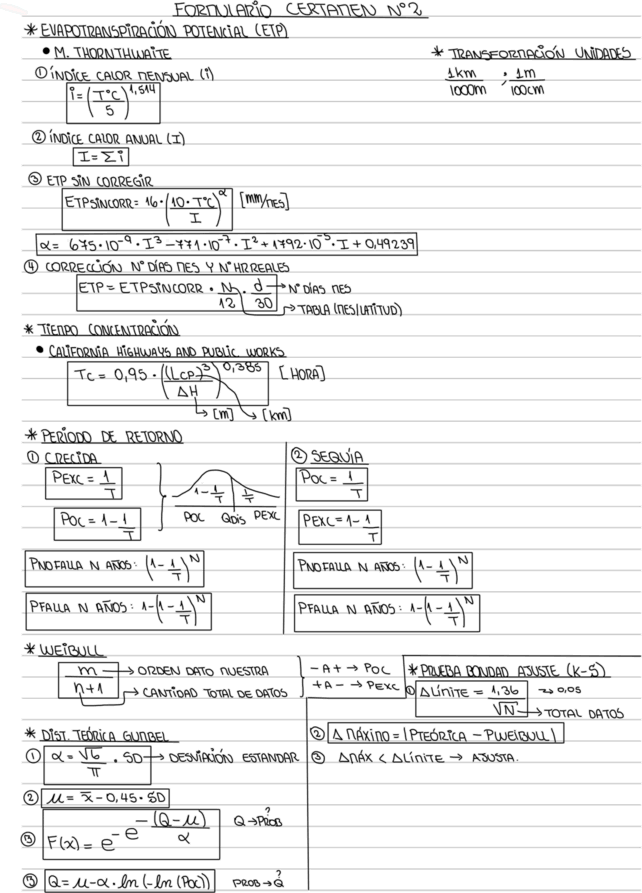 FORMULARIO CERTAMEN N°2
* EVAPOTRANSPIRACIÓN POTENCIAL (ETP)
• M. THORNTHWAITE
* TRANSFORMACIÓN UNIDADES
1km/1000m ; 1m/100cm
① ÍNDICE CALOR MENSUAL (i)
i = (T°C/5)^1,514
② ÍNDICE CALOR ANUAL (I)
I = Σi
③ ETP SIN CORREGIR
ETPSINCORR = 16·(10·T°C/I)^α [mm/MES]
α = 675·10^-9·I^3 - 771·10^-7·I^2 + 1792·10^-5·I + 0,49239
④ CORRECCIÓN N° DÍAS MES Y N° HR REALES
ETP = ETPSINCORR · N/12 · d/30 → N° DÍAS MES
→ TABLA (MES/LATITUD)
* TIEMPO CONCENTRACIÓN
• CALIFORNIA HIGHWAYS AND PUBLIC WORKS
Tc = 0,95 · ((Lcp)^3/ΔH)^0,385 [HORA]
→ [m] → [km]
* PERÍODO DE RETORNO
① CRECIDA
PEXC = 1/T
POC = 1 - 1/T
1-1/T 1/T
POC QDIS PEXC
PNOFALLA N AÑOS: (1-1/T)^N
PFALLA N AÑOS: 1-(1-1/T)^N
② SEQUÍA
POC = 1/T
PEXC = 1-1/T
PNOFALLA N AÑOS: (1-1/T)^N
PFALLA N AÑOS: 1-(1-1/T)^N
* WEIBULL
m/n+1 → ORDEN DATO MUESTRA
→ CANTIDAD TOTAL DE DATOS
-A+ → POC
+A- → PEXC
* PRUEBA BONDAD AJUSTE (K-S)
① ΔLÍMITE = 1,36/√N → 0,05
→ TOTAL DATOS
② ΔMÁXIMO = |PTEÓRICA - PWEIBULL|
③ ΔMÁX < ΔLÍMITE → AJUSTA.
* DIST. TEÓRICA GUMBEL
① α = √6/π · SD → DESVIACIÓN ESTANDAR
② μ = x̄ - 0,45·SD
③ F(x) = e^-e^-(Q-μ)/α Q→PROB?
③ Q = μ-α·ln(-ln(POC)) PROB→Q?